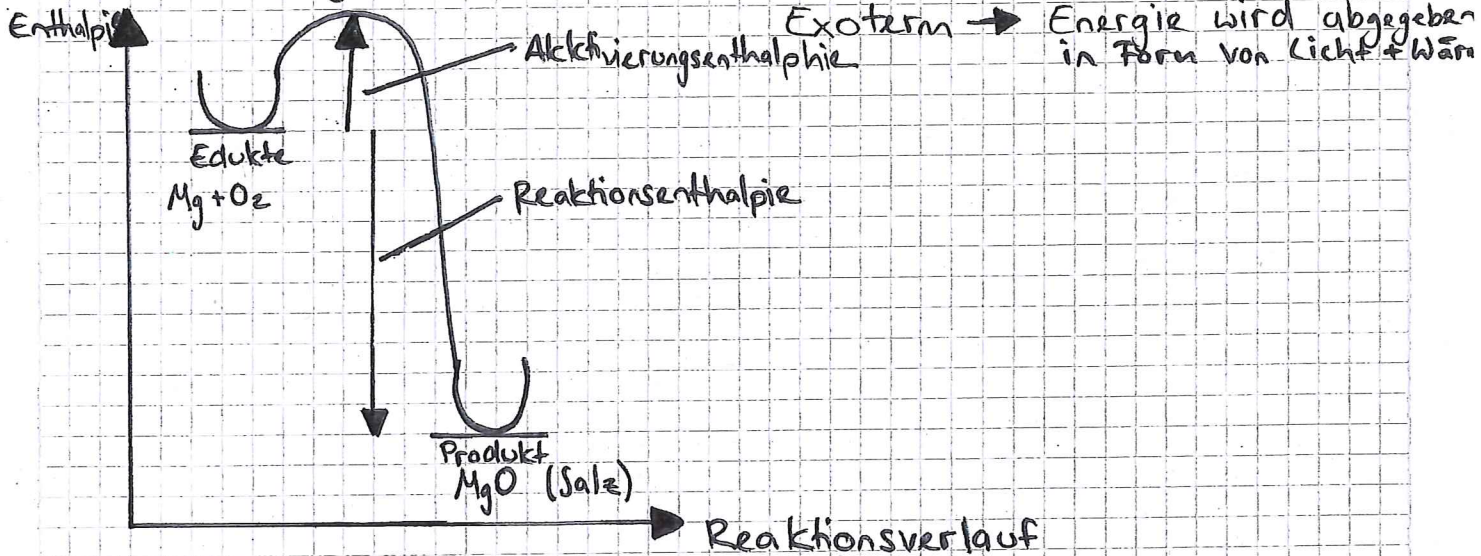 Enthalpie
Exoterm → Energie wird abgegeben
in Form von Licht + Wärm
Akktivierungsenthalphie
Edukte
Mg + O₂
Reaktionsenthalpie
Produkt
MgO (Salz)
Reaktionsverlauf